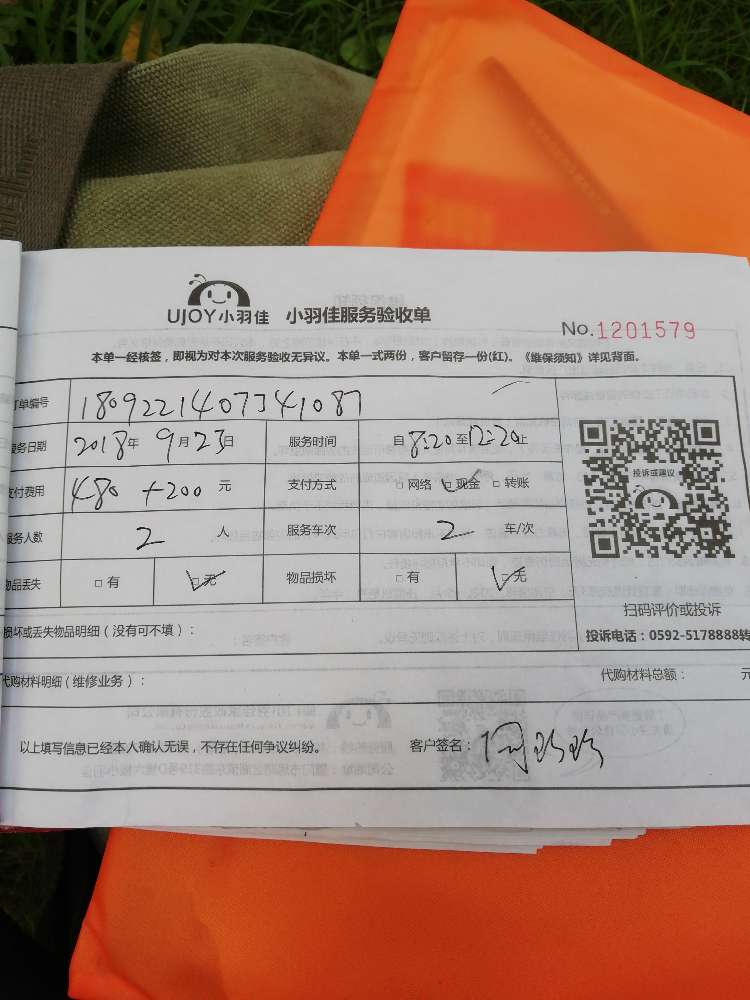 UJOY小羽佳 小羽佳服务验收单
No.1201579
本单一经核签，即视为对本次服务验收无异议。本单一式两份，客户留存一份(红)。《维保须知》详见背面。
订单编号 1809221407341087
服务日期 2018年9月23日 服务时间 自8:20至12:20止
支付费用 480+200元 支付方式 □网络 □现金 □转账
服务人数 2人 服务车次 2车/次
物品丢失 □有 □无 物品损坏 □有 □无
投诉或建议
扫码评价或投诉
投诉电话：0592-5178888转
损坏或丢失物品明细（没有可不填）：
代购材料明细（维修业务）： 代购材料总额： 元
以上填写信息已经本人确认无误，不存在任何争议纠纷。 客户签名：